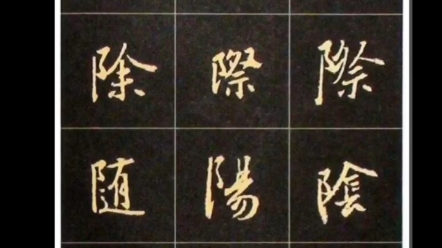 除際際
随陽陰